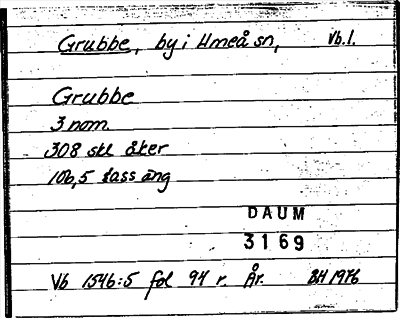 Grubbe, by i Umeå sn, Vb.l.
Grubbe
3 nom.
308 skl åker
106,5 lass äng
DAUM
3169
Vb 1546:5 fol 94 r. År. BH 1976